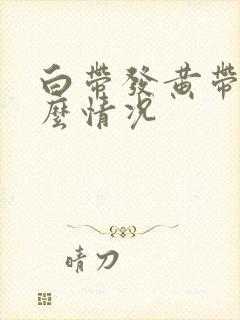 白帶發黃帶
麼情況
晴刀